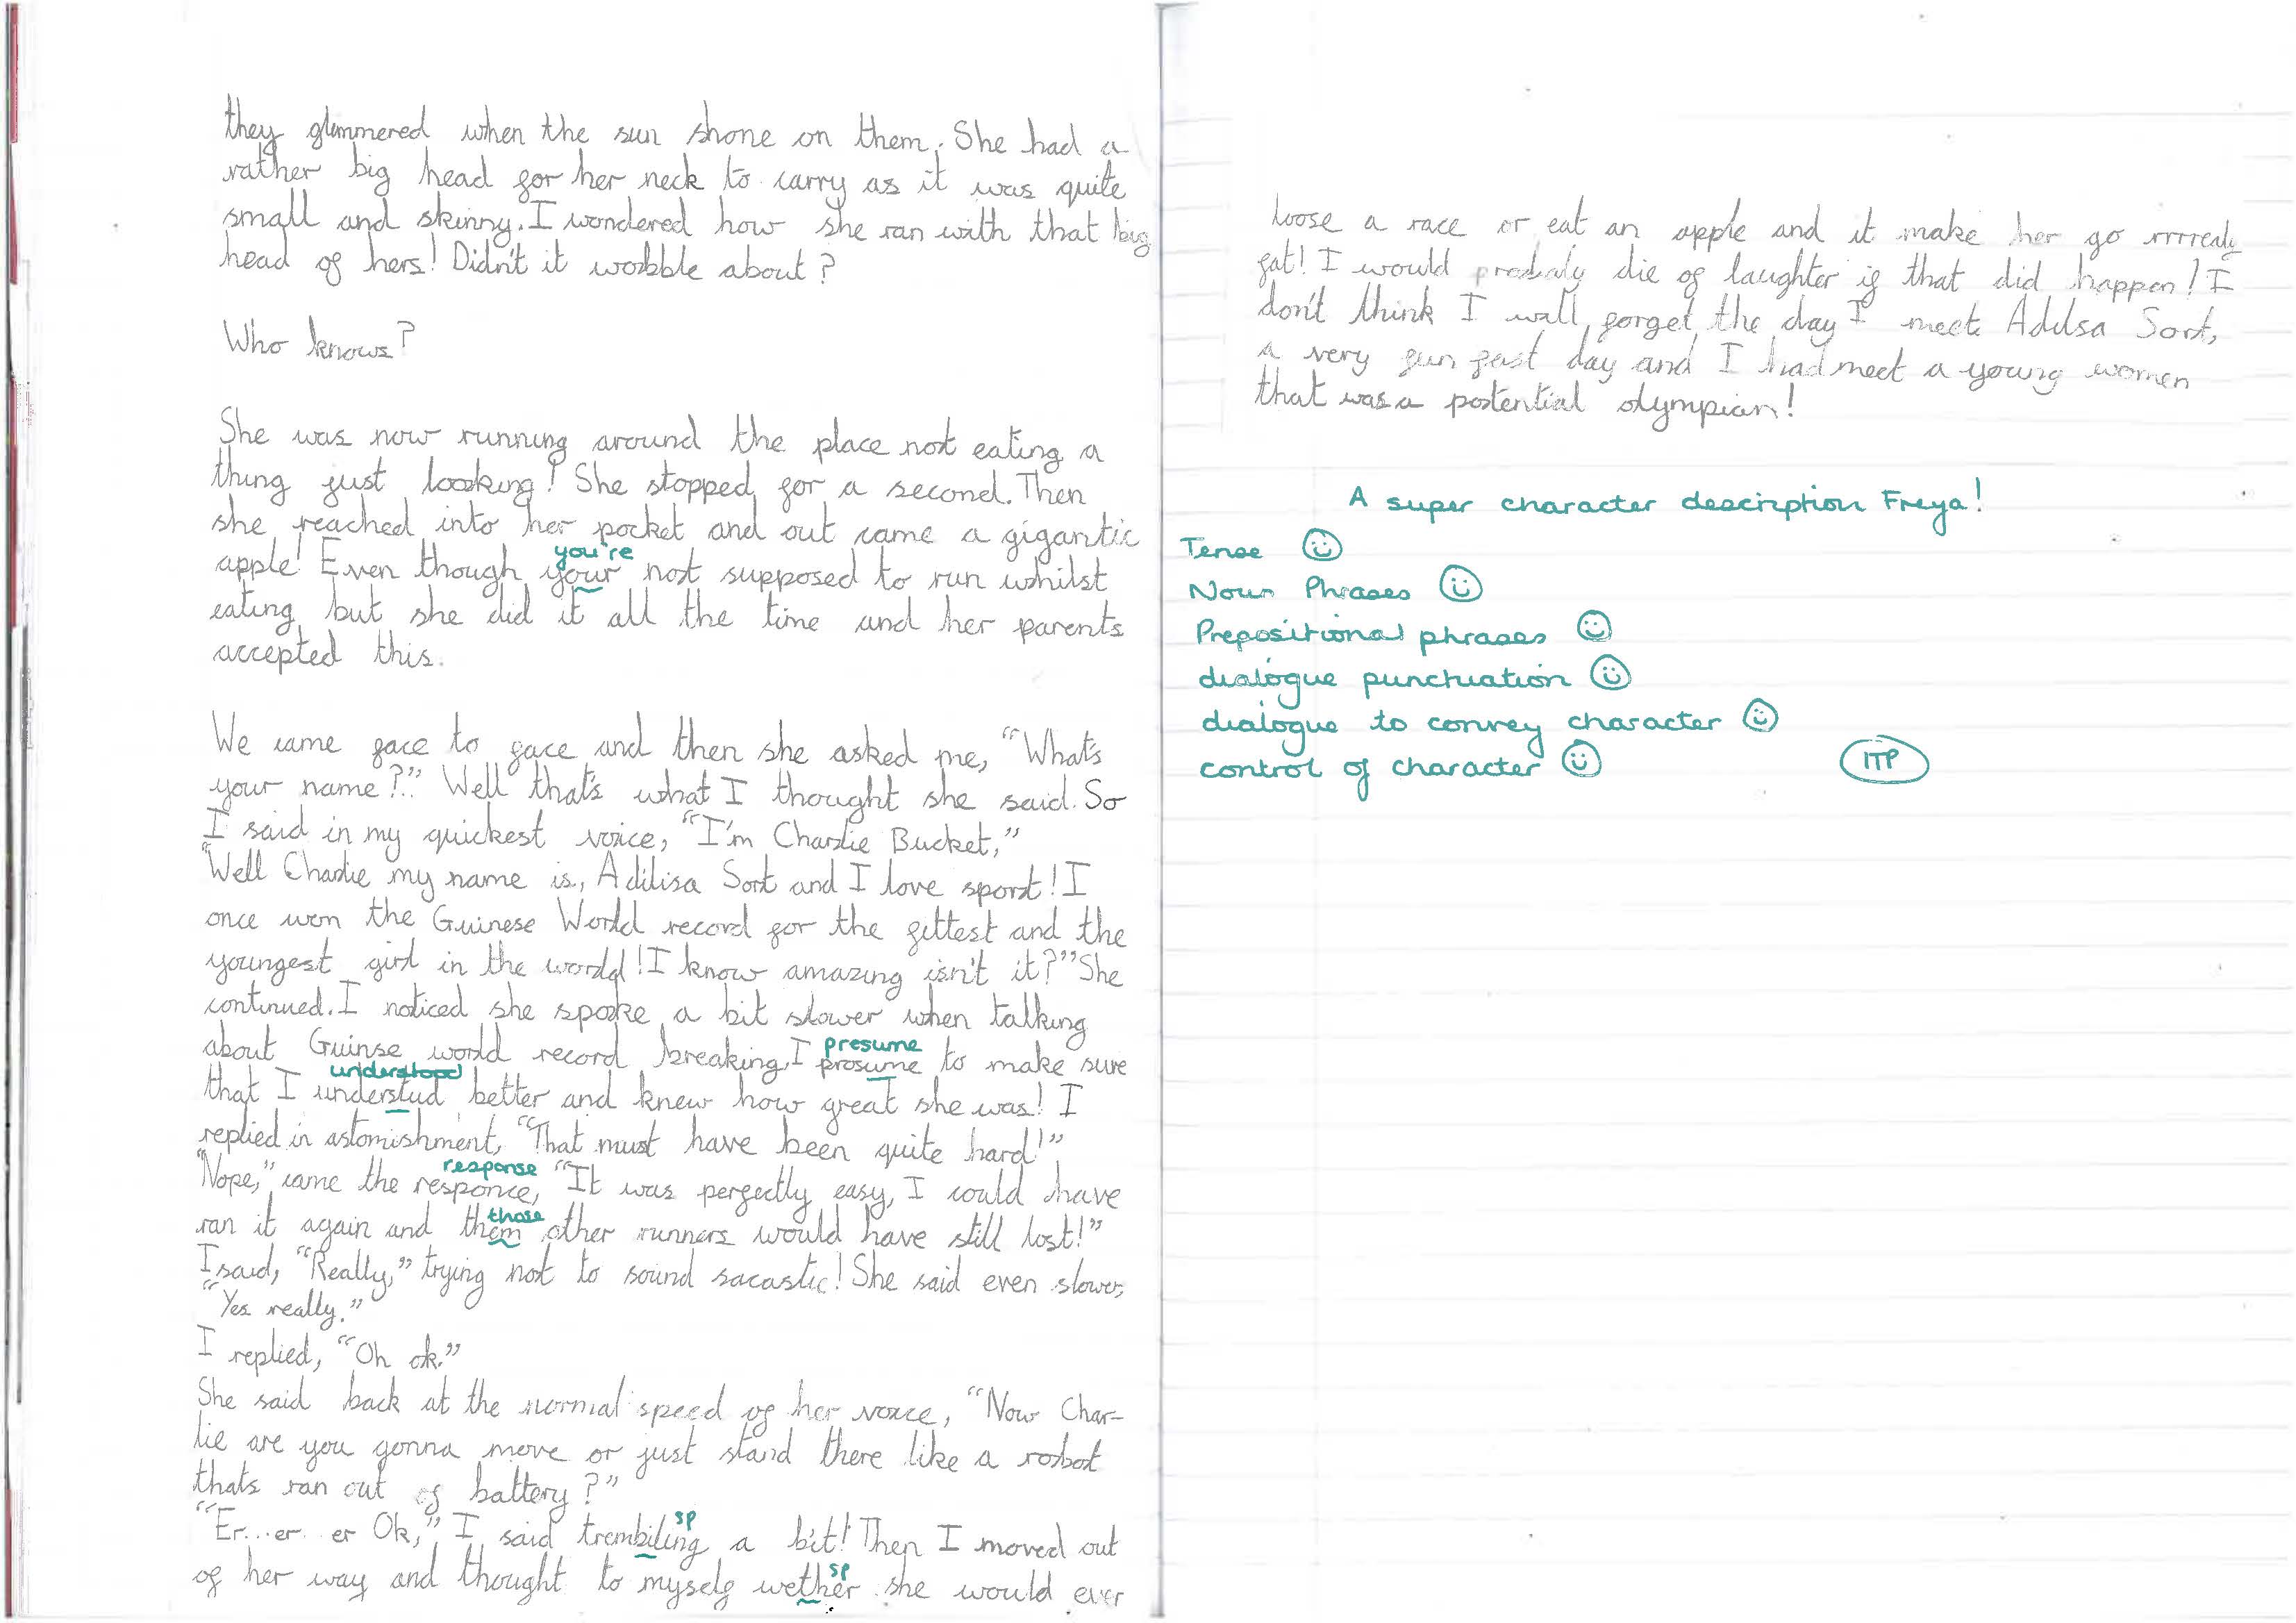 they glimmered when the sun shone on them. She had a
rather big head for her neck to carry as it was quite
small and skinny. I wondered how she ran with that big
head of hers! Didn't it wobble about?
Who knows?
She was now running around the place not eating a
thing just looking! She stopped for a second. Then
she reached into her pocket and out came a gigantic
you're
apple! Even though your not supposed to run whilst
eating but she did it all the time and her parents
accepted this.
We came face to face and then she asked me, "What's
your name?". Well that's what I thought she said. So
I said in my quickest voice, "I'm Charlie Bucket,"
"Well Charlie my name is, Adilisa Sort and I love sport! I
once won the Guinese World record for the fittest and the
youngest girl in the world! I know amazing isn't it?" She
continued. I noticed she spoke a bit slower when talking
presume
about Guinse world record breaking, I prosume to make sure
understood
that I understud better and knew how great she was! I
replied in astonishment, "That must have been quite hard!"
response
"Nope," came the responce, "It was perfectly easy, I could have
those
ran it again and them other runners would have still lost!"
I said, "Really," trying not to sound sacastic! She said even slower,
"Yes really."
I replied, "Oh ok."
She said back at the normal speed of her voice, "Now Char-
lie are you gonna move or just stand there like a robot
thats ran out of battery?"
sp
"Er...er..er Ok," I said trembiling a bit! Then I moved out
sp
of her way and thought to myself wether she would ever
loose a race or eat an apple and it make her go rrrrealy
fat! I would probaly die of laughter if that did happen! I
don't think I will forget the day I meet Adilsa Sort,
a very fun fast day and I had meet a young women
that was a potential olympian!
A super character description Freya!
Tense
Noun Phrases
Prepositional phrases
dialogue punctuation
dialogue to convey character
control of character
ITP